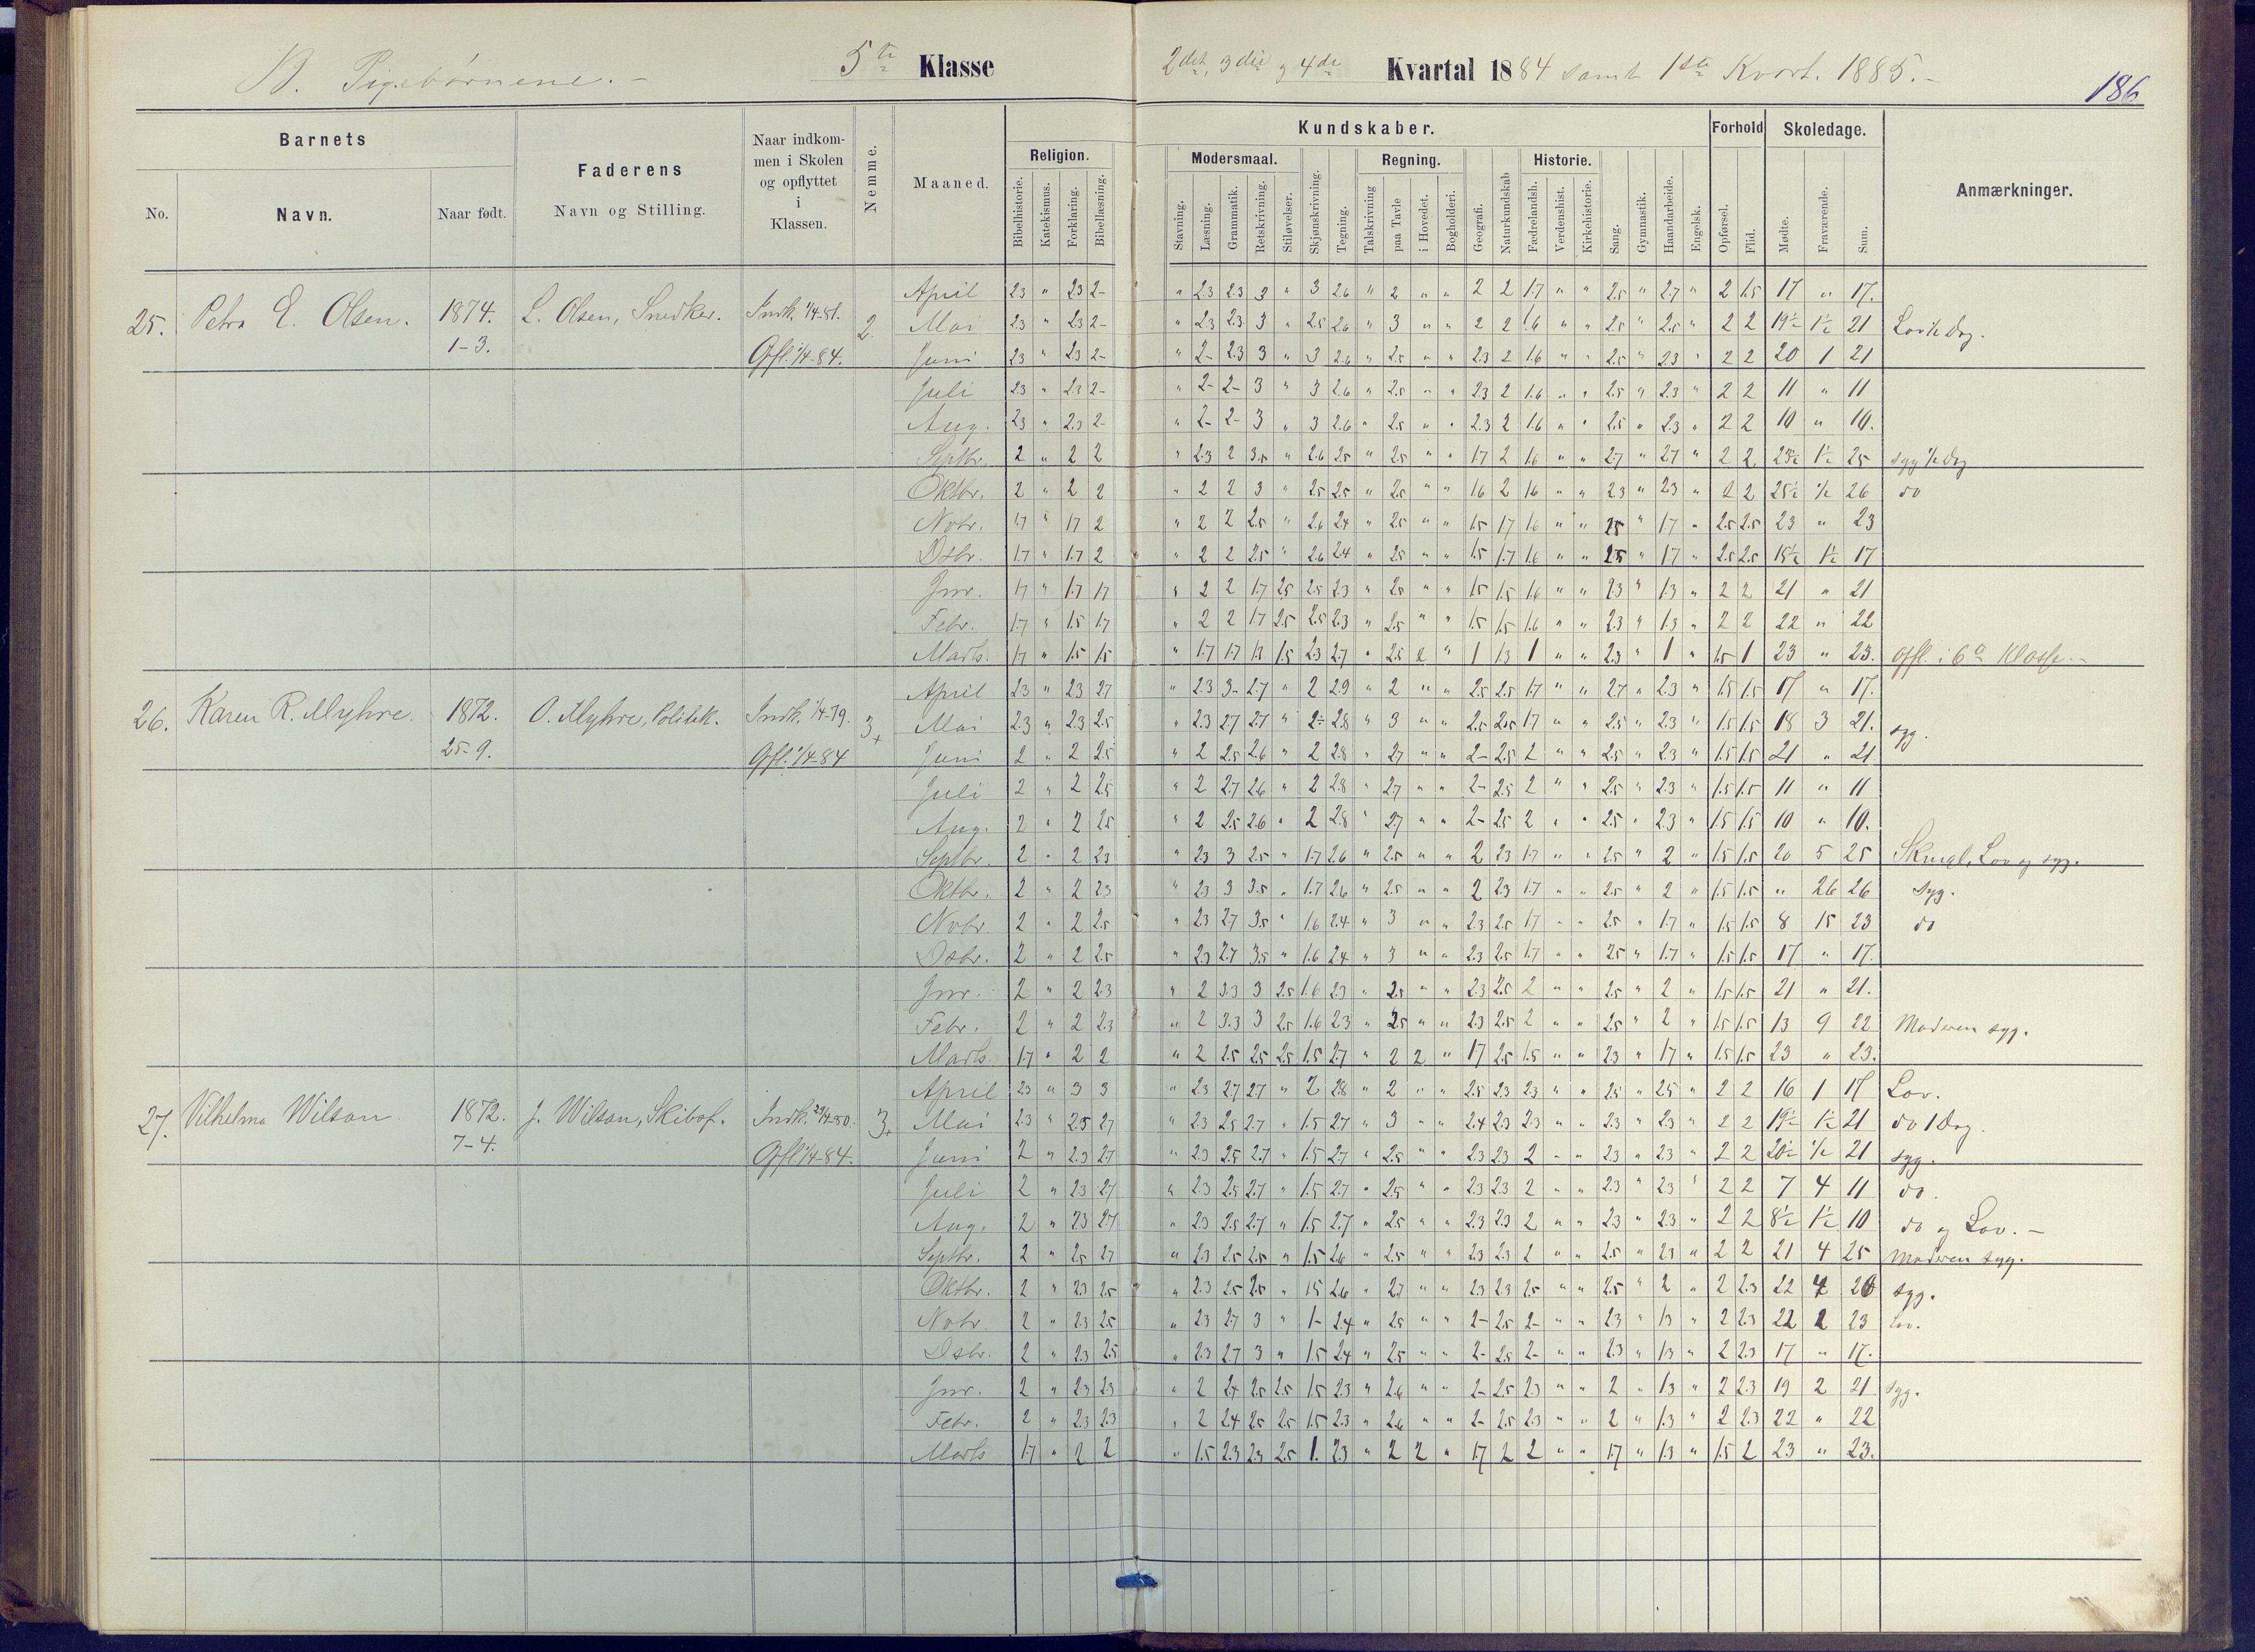 B. Pigebørnene. — 5te Klasse 2det, 3die og 4de Kvartal 1884 samt 1ste Kvart. 1885. —
186
Barnets
Faderens
Navn og Stilling.
Naar indkommen i Skolen og opflyttet i Klassen.
Nemme.
Maaned.
Religion.
Kundskaber.
Forhold
Skoledage.
Anmærkninger.
No.
Navn.
Naar født.
Modersmaal.
Regning.
Historie.
Bibelhistorie. Katekismus. Forklaring. Bibellæsning.
Stavning. Læsning. Grammatik. Retskrivning. Stiløvelser. Skjønskrivning. Tegning. Talskrivning paa Tavle i Hovedet. Bogholderi. Geografi. Naturkundskab Fædrelandsh. Verdenshist. Kirkehistorie. Sang. Gymnastik. Haandarbeide. Engelsk. Opførsel. Flid. Mødte. Fraværende. Sum.
25. Petra E. Olsen. 1874. 1-3. L. Olsen, Snedker. Indk. 1/4-81. Opfl. 1/4-84. 2
April 23 " 23 2- " 23 23 3 " 3 26 " 2 " " 2 2 17 " " 25 " 27 " 2 15 17 " 17.
Mai 23 " 23 2- " 23 23 3 " 25 26 " 3 " " 2 2 16 " " 25 " 25 " 2 2 19½ 1½ 21 Lov ½ Dag.
Juni 23 " 23 2- " 2- 23 3 " 3 26 " 25 " " 23 2 16 " " 25 " 23 " 2 2 20 1 21
Juli 23 " 23 2- " 2- 2- 3 " 3 26 " 25 " " 23 2 16 " " 25 " 23 " 2 2 11 " 11
Aug. 23 " 23 2- " 2- 2- 3 " 3 26 " 25 " " 23 2 16 " " 25 " 23 " 2 2 10 " 10.
Septbr. 2 " 2 2 " 23 2 35 " 26 25 " 25 " " 17 2 16 " " 27 " 27 " 2 2 23½ 1½ 25 syg ½ Dag
Oktbr. 2 " 2 2 " 2 2 3 " 25 25 " 25 " " 16 2 16 " " 23 " 23 " 2 2 25½ ½ 26 do
Novbr. 17 " 17 2 " 2 2 25 " 26 24 " 25 " " 15 17 16 " " 25 " 17 " 25 25 23 " 23
Dsbr. 17 " 17 2 " 2 2 25 " 26 24 " 25 " " 15 17 16 " " 25 " 17 " 25 25 15½ 1½ 17
Jnr. 17 " 17 17 " 2 2 17 25 25 23 " 25 " " 15 15 16 " " 23 " 13 " 2 2 21 " 21
Febr. 17 " 15 17 " 2 2 17 25 25 23 " 25 " " 15 15 16 " " 23 " 13 " 2 2 22 " 22
Marts. 17 " 15 15 " 17 17 13 15 23 27 " 25 2 " 1 13 1 " " 23 " 1 " 15 1 23 " 23. opfl. i 6te Klasse. —
26. Karen R. Myhre. 1872. 25-9. O. Myhre, Politik. Indk. 1/4-79. Opfl. 1/4-84 3+
April 23 " 23 27 " 23 3- 27 " 2 29 " 2 " " 25 25 17 " " 27 " 23 " 15 15 17 " 17.
Mai 23 " 23 25 " 23 27 27 " 2- 28 " 3 " " 25 25 17 " " 25 " 23 " 15 15 18 3 21. syg.
Juni 2 " 2 25 " 2 25 26 " 2 28 " 27 " " 2- 25 2 " " 25 " 23 " 15 15 21 " 21
Juli 2 " 2 25 " 2 27 26 " 2 28 " 27 " " 2- 25 2 " " 25 " 23 " 15 15 11 " 11
Aug. 2 " 2 25 " 2 25 26 " 2 28 " 27 " " 2- 25 2 " " 25 " 23 " 15 15 10 " 10.
Septbr. 2 " 2 23 " 23 3 25 " 17 26 " 25 " " 2 23 17 " " 25 " 2 " 15 15 20 5 25 Skmgl. Lov og syg.
Oktbr. 2 " 2 23 " 23 3 35 " 17 26 " 25 " " 2 23 17 " " 25 " 2 " 15 15 " 26 26 syg.
Novbr. 2 " 2 25 " 23 27 35 " 16 24 " 3 " " 23 25 17 " " 25 " 17 " 15 15 8 15 23 do
Dsbr. 2 " 2 25 " 23 27 35 " 16 24 " 3 " " 23 25 17 " " 25 " 17 " 15 15 17 " 17.
Jnr. 2 " 2 23 " 2 33 3 25 16 23 " 25 " " 23 25 2 " " 25 " 2 " 15 15 21 " 21.
Febr. 2 " 2 23 " 2 33 3 25 16 23 " 25 " " 23 25 2 " " 25 " 2 " 15 15 13 9 22 Moderen syg.
Marts. 17 " 2 2 " 2 25 25 25 15 27 " 2 2 " 17 25 15 " " 23 " 17 " 15 15 23 " 23.
27. Vilhelma Wilson. 1872. 7-4. J. Wilson, Skibsf. Indk. 29/4-80. Opfl 1/4-84. 3+
April 23 " 3 3 " 23 27 27 " 2 28 " 2 " " 25 23 23 " " 25 " 25 " 2 2 16 1 17 Lov.
Mai 23 " 25 27 " 23 25 27 " 15 27 " 3 " " 24 23 23 " " 23 " 23 " 2 2 19½ 1½ 21 do 1 Dag.
Juni 2 " 23 27 " 23 25 27 " 15 27 " 25 " " 23 23 2 " " 23 " 23 " 2 2 20½ ½ 21 syg.
Juli 2 " 23 27 " 23 25 27 " 15 27 " 25 " " 23 23 2 " " 23 " 23 " 2 2 7 4 11 do.
Aug. 2 " 23 27 " 23 25 27 " 15 27 " 25 " " 23 23 2 " " 23 " 23 " 2 2 8½ 1½ 10 do og Lov. —
Septbr. 2 " 25 27 " 23 25 25 " 15 26 " 25 " " 23 23 2 " " 25 " 23 " 2 2 21 4 25 Moderen syg.
Oktbr. 2 " 23 25 " 23 25 25 " 15 26 " 27 " " 23 23 25 " " 25 " 2 " 2 23 22 4 26 syg.
Novbr 2 " 23 25 " 23 27 3 " 1- 24 " 25 " " 2- 25 2- " " 23 " 13 " 2 23 22 1 23 Lov.
Dsbr. 2 " 23 25 " 23 27 3 " 15 24 " 25 " " 2- 25 2- " " 23 " 13 " 2 23 17 " 17.
Jnr. 2 " 23 23 " 2 24 25 25 15 23 " 26 " " 2- 25 23 " " 2 " 13 " 2 23 19 2 21 syg.
Febr. 2 " 23 23 " 2 24 25 25 15 23 " 26 " " 2- 25 23 " " 2 " 13 " 2 23 22 " 22
Marts 17 " 2 2 " 15 23 23 25 1. 23 " 2 2 " 17 2 2 " " 17 " 13 " 15 2 23 " 23.